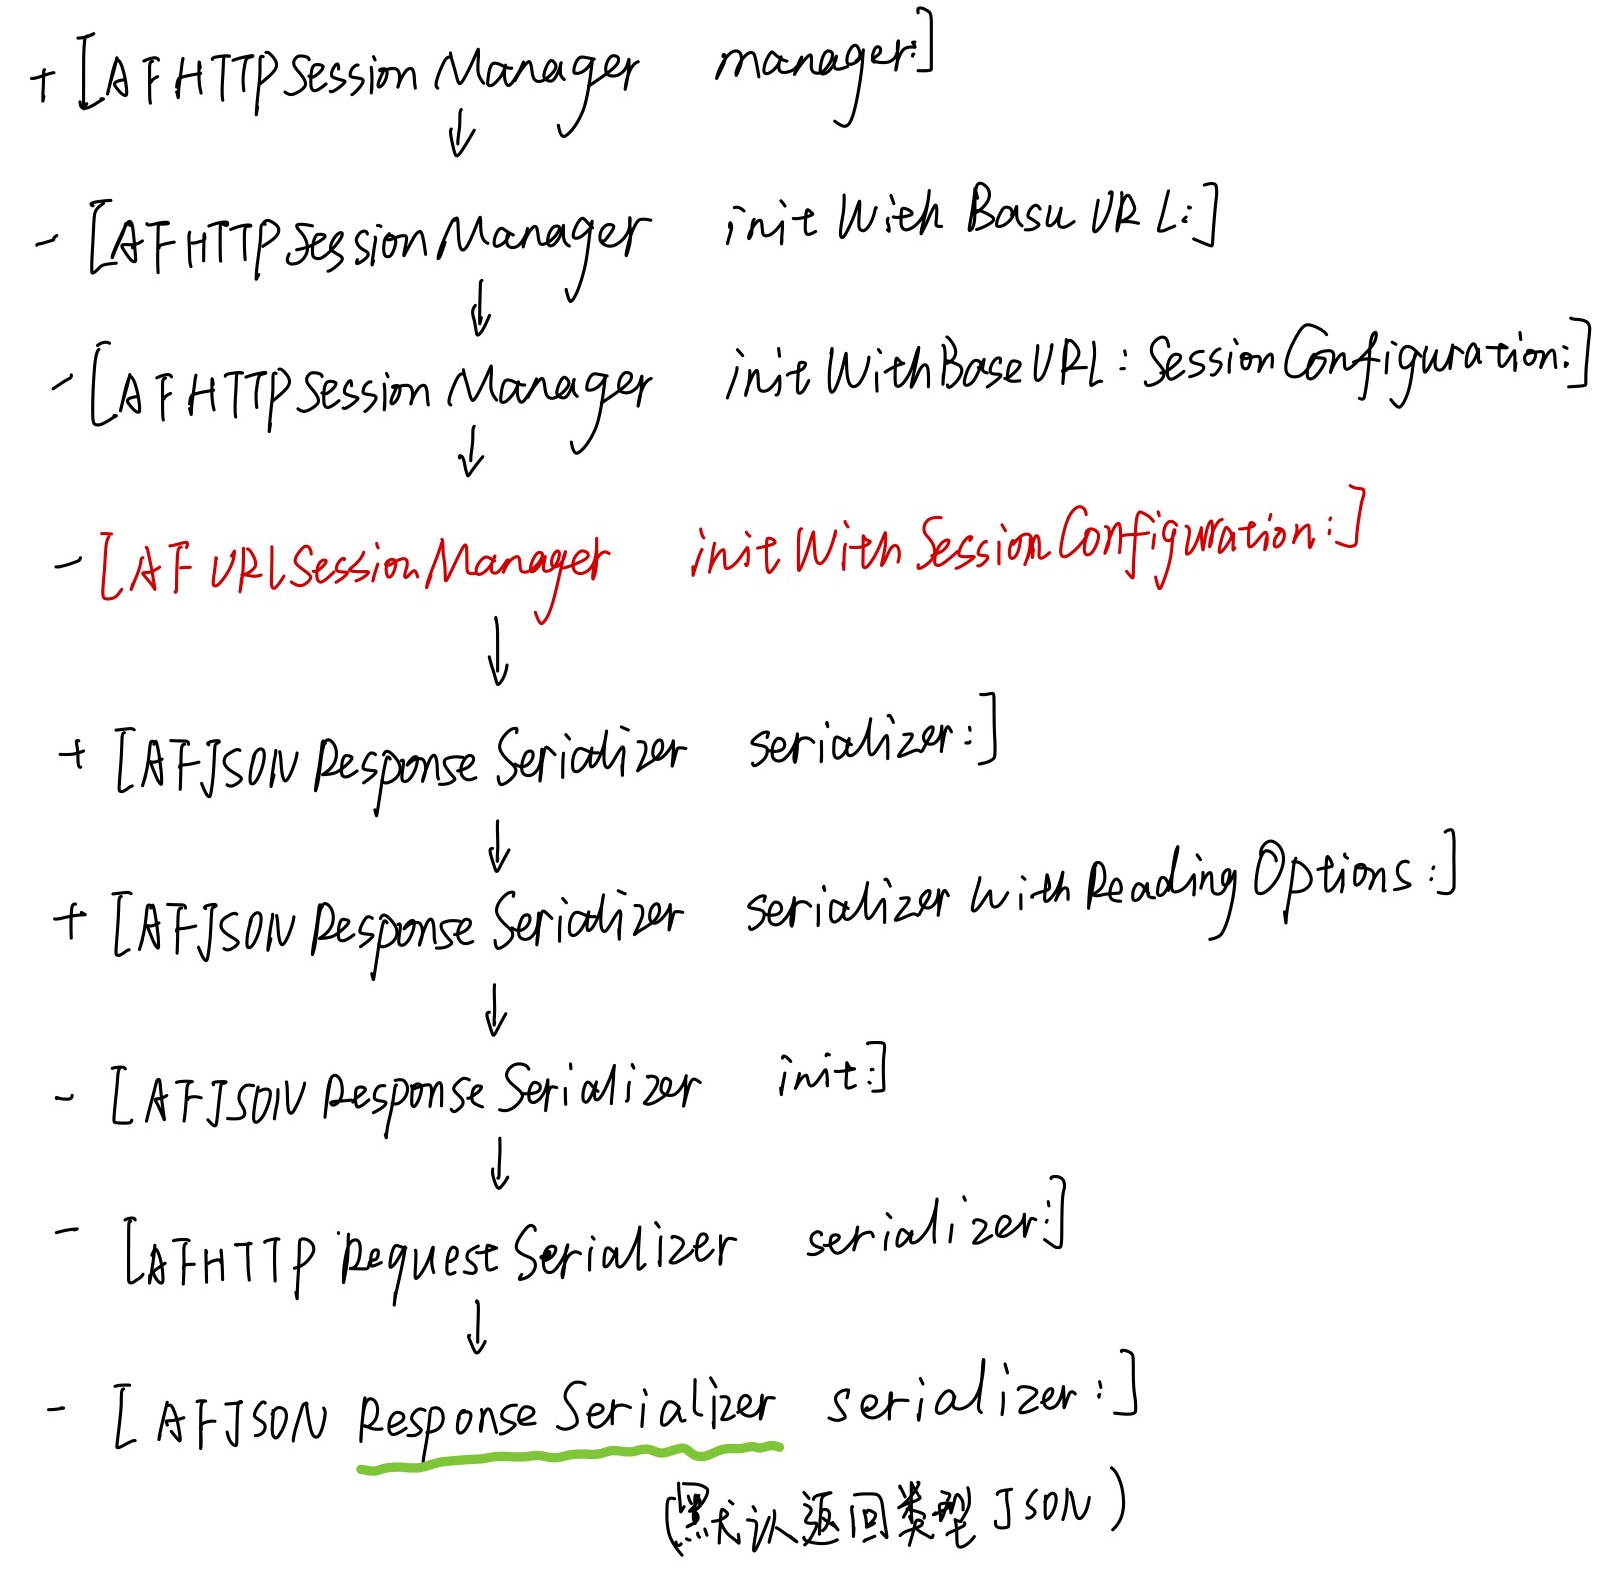 + [AFHTTPSessionManager manager:]
- [AFHTTPSessionManager initWithBasuURL:]
- [AFHTTPSessionManager initWithBaseURL:SessionConfiguration:]
- [AFURLSessionManager initWithSessionConfiguration:]
+ [AFJSONResponseSerializer serializer:]
+ [AFJSONResponseSerializer serializerWithReadingOptions:]
- [AFJSONResponseSerializer init:]
- [AFHTTPRequestSerializer serializer:]
- [AFJSONResponseSerializer serializer:]
(默认返回类型JSON)